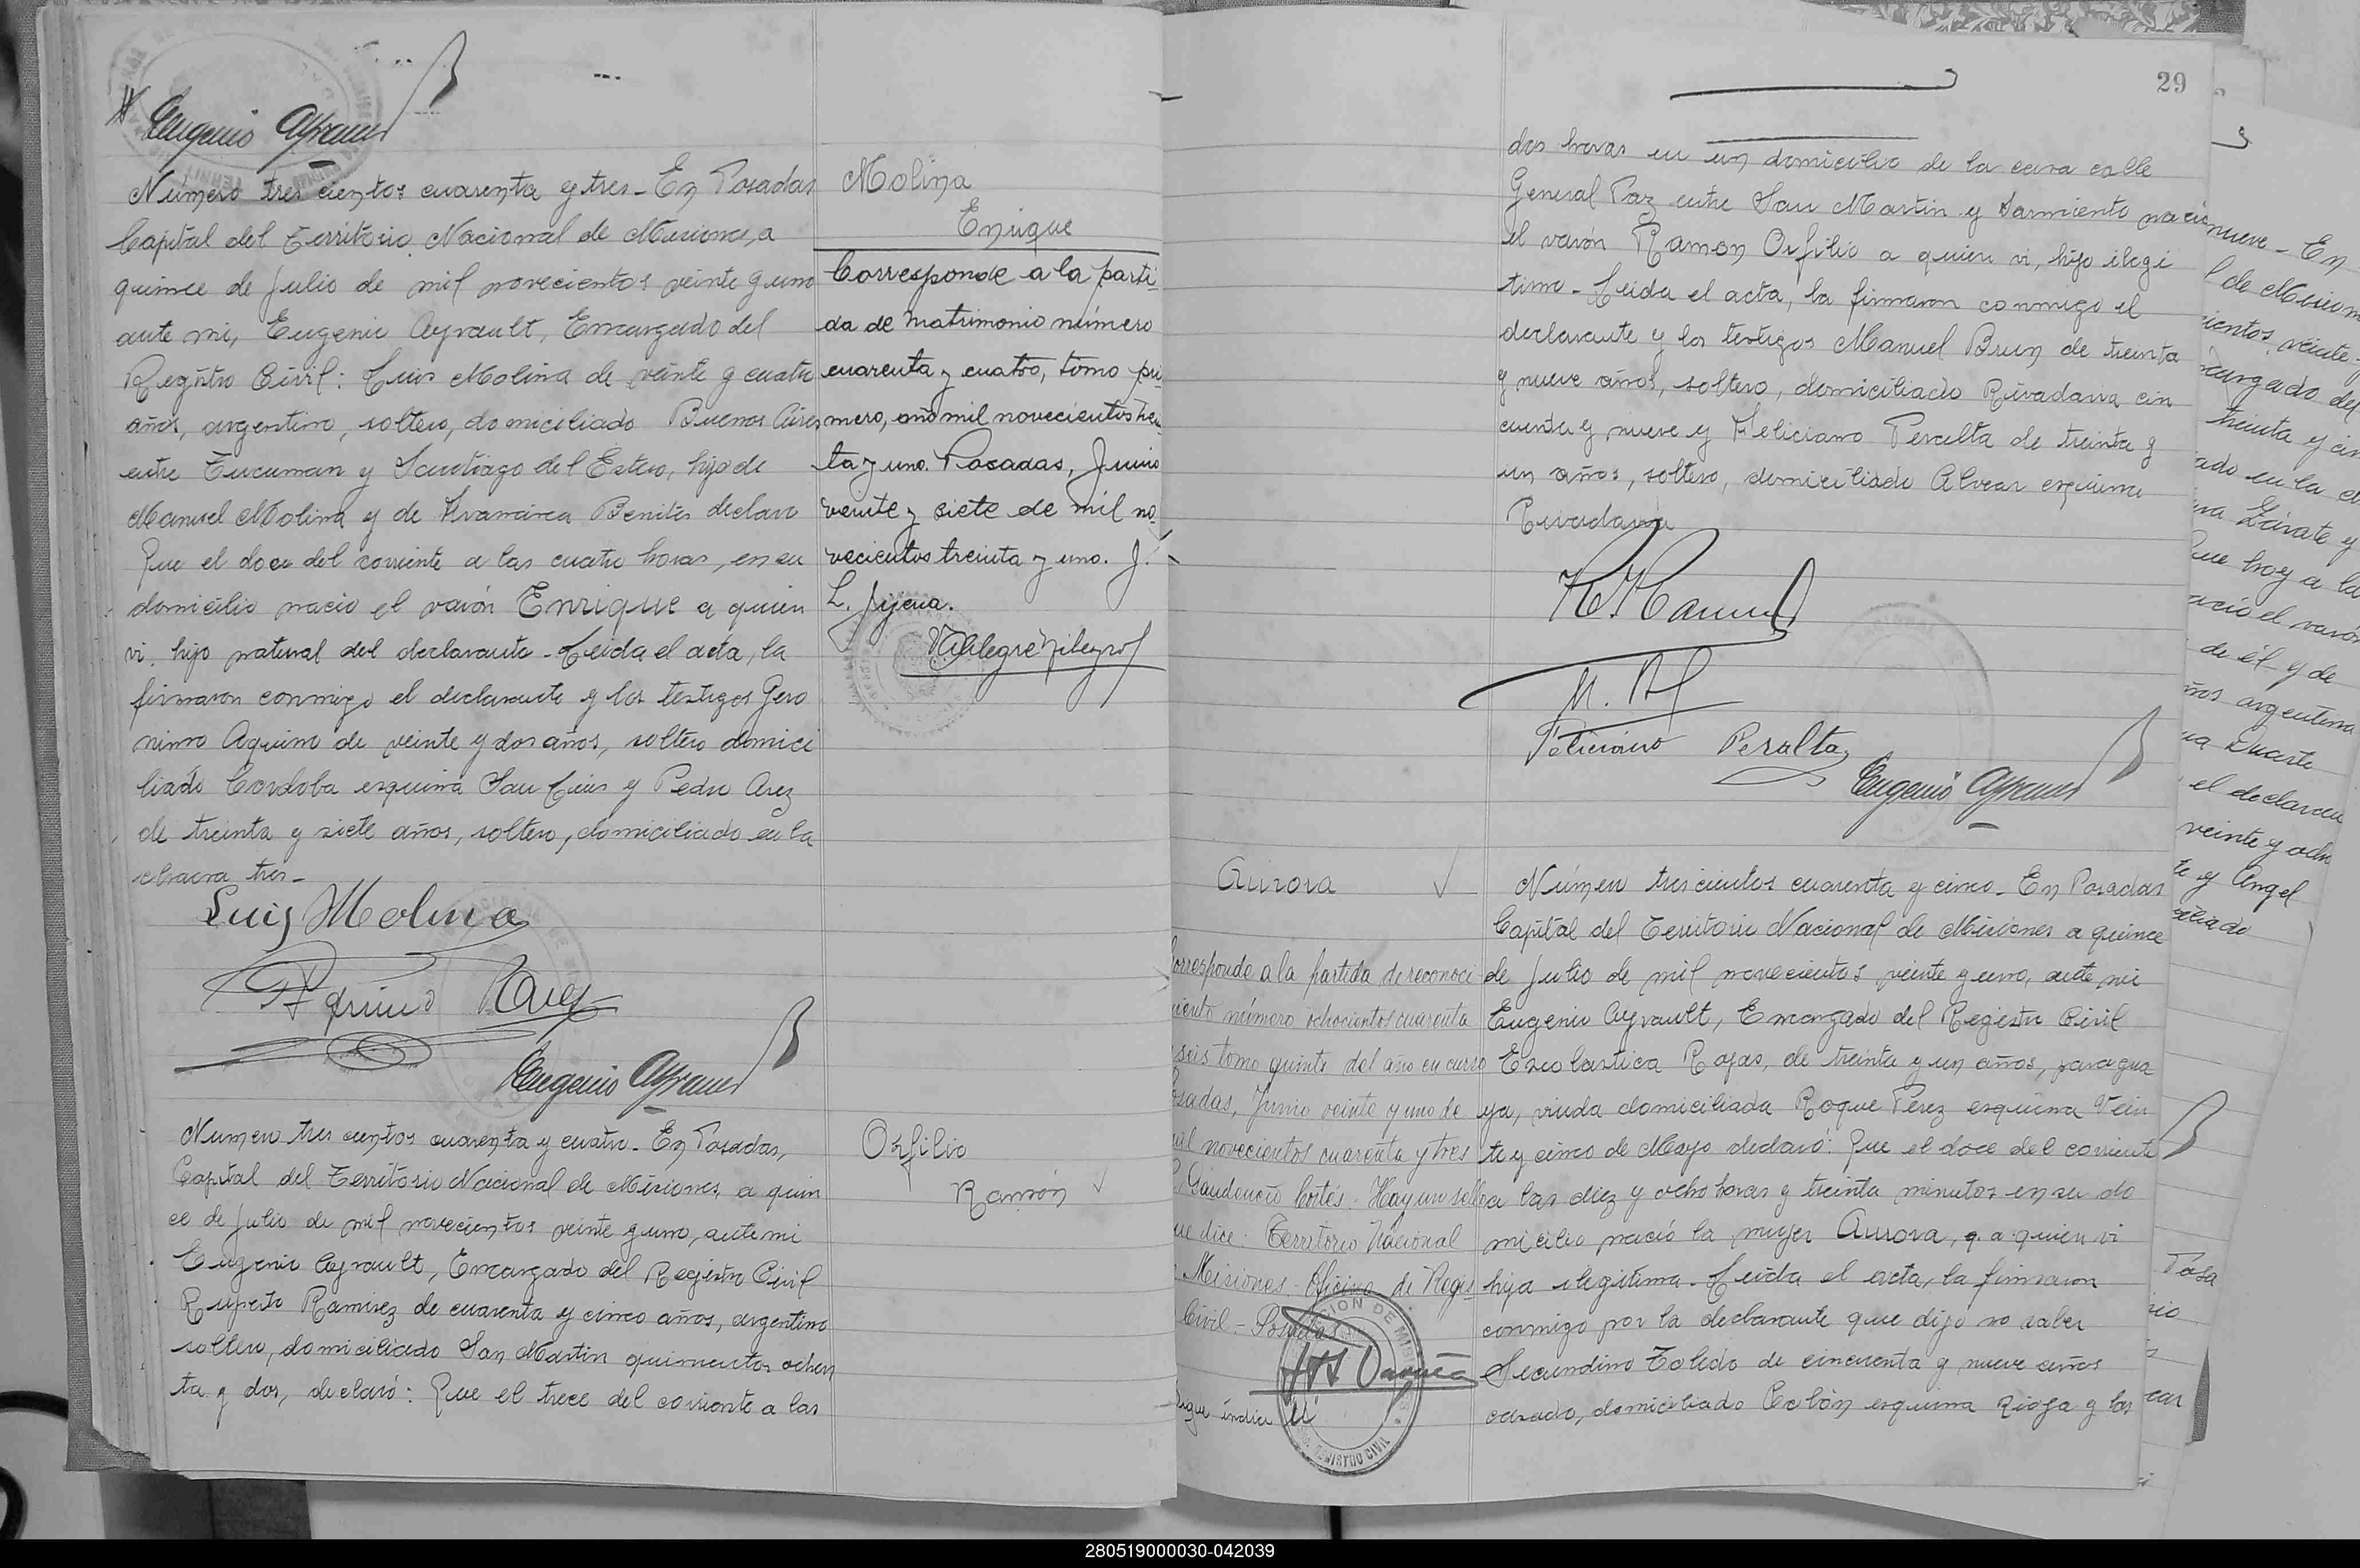 Eugenio Ayrault
Número tres cientos cuarenta y tres - En Posadas
Capital del Territorio Nacional de Misiones, a
quince de Julio de mil novecientos veinte y uno
ante mi, Eugenio Ayrault, Encargado del
Registro Civil: Luis Molina de veinte y cuatro
años, argentino, soltero, domiciliado Buenos Aires
entre Tucuman y Santiago del Estero, hijo de
Manuel Molina y de Francisca Benites declaro
Que el doce del corriente a las cuatro horas, en su
domicilio nacio el varón Enrique a quien
vi, hijo natural del declarante - Leida el acta, la
firmaron conmigo el declarante y los testigos Gero
nimo Aquino de veinte y dos años, soltero domici
liado Cordoba esquina San Luis y Pedro Arez
de treinta y siete años, soltero, domiciliado en la
chacra tres -
Luis Molina
Aquino
Eugenio Ayrault
Numero tres cientos cuarenta y cuatro - En Posadas,
Capital del Territorio Nacional de Misiones, a quin
ce de Julio de mil novecientos veinte y uno, ante mi
Eugenio Ayrault, Encargado del Registro Civil
Ruperto Ramirez de cuarenta y cinco años, argentino
soltero, domiciliado San Martin quinientos ochen
ta y dos, declaró: Que el trece del corriente a las
Molina
Enrique
Corresponde a la parti-
da de matrimonio número
cuarenta y cuatro, tomo pri
mero, año mil novecientos trein
ta y uno. Posadas, Junio
veinte y siete de mil no-
vecientos treinta y uno. J.
L. Jijena.
Orfilio
Ramón
29
dos horas en un domicilio de la casa calle
General Paz entre San Martin y Sarmiento nacio
el varón Ramon Orfilio a quien vi, hijo ilegi
timo - Leida el acta, la firmaron conmigo el
declarante y los testigos Manuel Brun de treinta
y nueve años, soltero, domiciliado Rivadavia cin
cuenta y nueve y Feliciano Peralta de treinta y
un años, soltero, domiciliado Alvear esquina
Rivadavia
Feliciano Peralta
Eugenio Ayrault
Aurora
Corresponde a la partida de reconoci-
miento número ochocientos cuarenta
seis tomo quinto del año en curso
Posadas, Junio veinte y uno de
mil novecientos cuarenta y tres
Gaudencio Cortés. Hay un sello
que dice: Territorio Nacional
Misiones - Oficina de Regis-
Civil - Posadas
REGISTRO CIVIL
Númer tres cientos cuarenta y cinco - En Posadas
Capital del Territorio Nacional de Misiones a quince
de Julio de mil novecientos veinte y uno, ante mi
Eugenio Ayrault, Encargado del Registro Civil
Escolastica Rojas, de treinta y un años, paragua
ya, viuda domiciliada Roque Perez esquina Vein
te y cinco de Mayo declaró: Que el doce del corriente
a las diez y ocho horas y treinta minutos en su do
micilio nació la mujer Aurora, a quien vi
hija ilegitima - Leida el acta, la firmaron
conmigo por la declarante que dijo no saber
Secundino Toledo de cincuenta y nueve años
casado, domiciliado Colón esquina Rioja y los
nueve - En
de Mision
cientos veinte-
cargado del
treinta y cin
Zárate y
Que hoy a la
nació el varón
de él y de
años argentina
Duarte
el declaran
veinte y ocho
te y Angel
ciliado
Posa
280519000030-042039